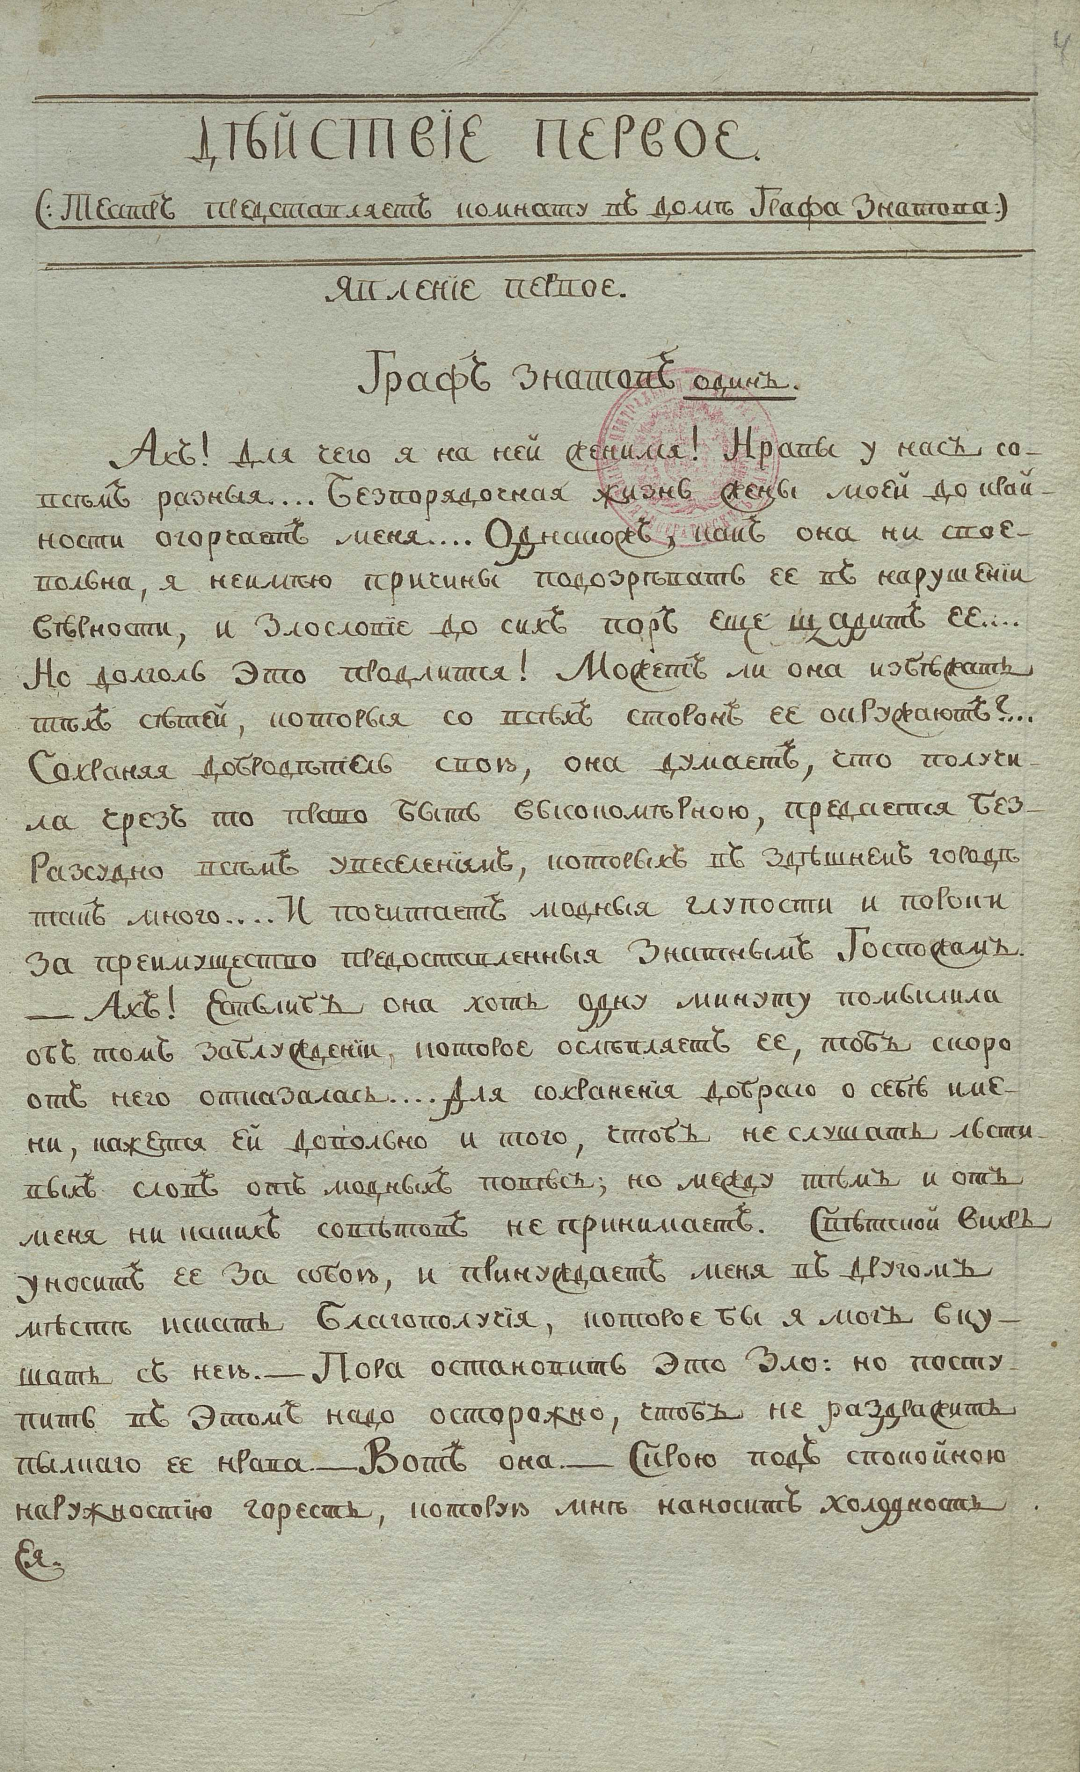 4
ДѢЙСТВІЕ ПЕРВОЕ.
(: Театръ представляетъ комнату въ домѣ Графа Знатова :)
Явленіе первое.
Графъ Знатовъ одинъ.
Ахъ! Для чего я на ней женился! Нравы у насъ со-
всѣмъ разныя.... Безпорядочная жизнь жены моей до край-
ности огорчаетъ меня.... Однакожъ, какъ она ни свое-
вольна, я неимѣю причины подозрѣвать ее въ нарушеніи
вѣрности, и Злословіе до сихъ поръ еще щадитъ ее....
Но долголь Это продлится! Можетъ ли она избѣжать
тѣхъ сѣтей, которыя со всѣхъ сторонъ ее окружаютъ?...
Сохраняя добродѣтель свою, она думаетъ, что получи-
ла чрезъ то право быть высокомѣрною, предается без-
разсудно всѣмъ увеселеніямъ, которыхъ въ здѣшнемъ городѣ
такъ много.... И почитаетъ модныя глупости и пороки
За преимущество предоставленныя Знатнымъ Госпожамъ.
— Ахъ! Естьлибъ она хоть одну минуту помыслила
объ томъ заблужденіи, которое ослѣпляетъ ее, тобъ скоро
отъ него отказалась.... Для сохраненія добраго о себѣ име-
ни, кажется ей довольно и того, чтобъ неслушать льсти-
выхъ словъ отъ модныхъ повѣсъ; но между тѣмъ и отъ
меня ни какихъ совѣтовъ непринимаетъ. Свѣтской вихрь
уноситъ ее За собою, и принуждаетъ меня въ другомъ
мѣстѣ искать благополучія, которое бы я могъ вку-
шать съ нею. — Пора остановить Это Зло: но посту-
пить въ Этомъ надо осторожно, чтобъ не раздражить
пылкаго ее нрава. — Вотъ она. — Скрою подъ спокойною
наружностію горесть, которую мнѣ наноситъ холодность
Ея.